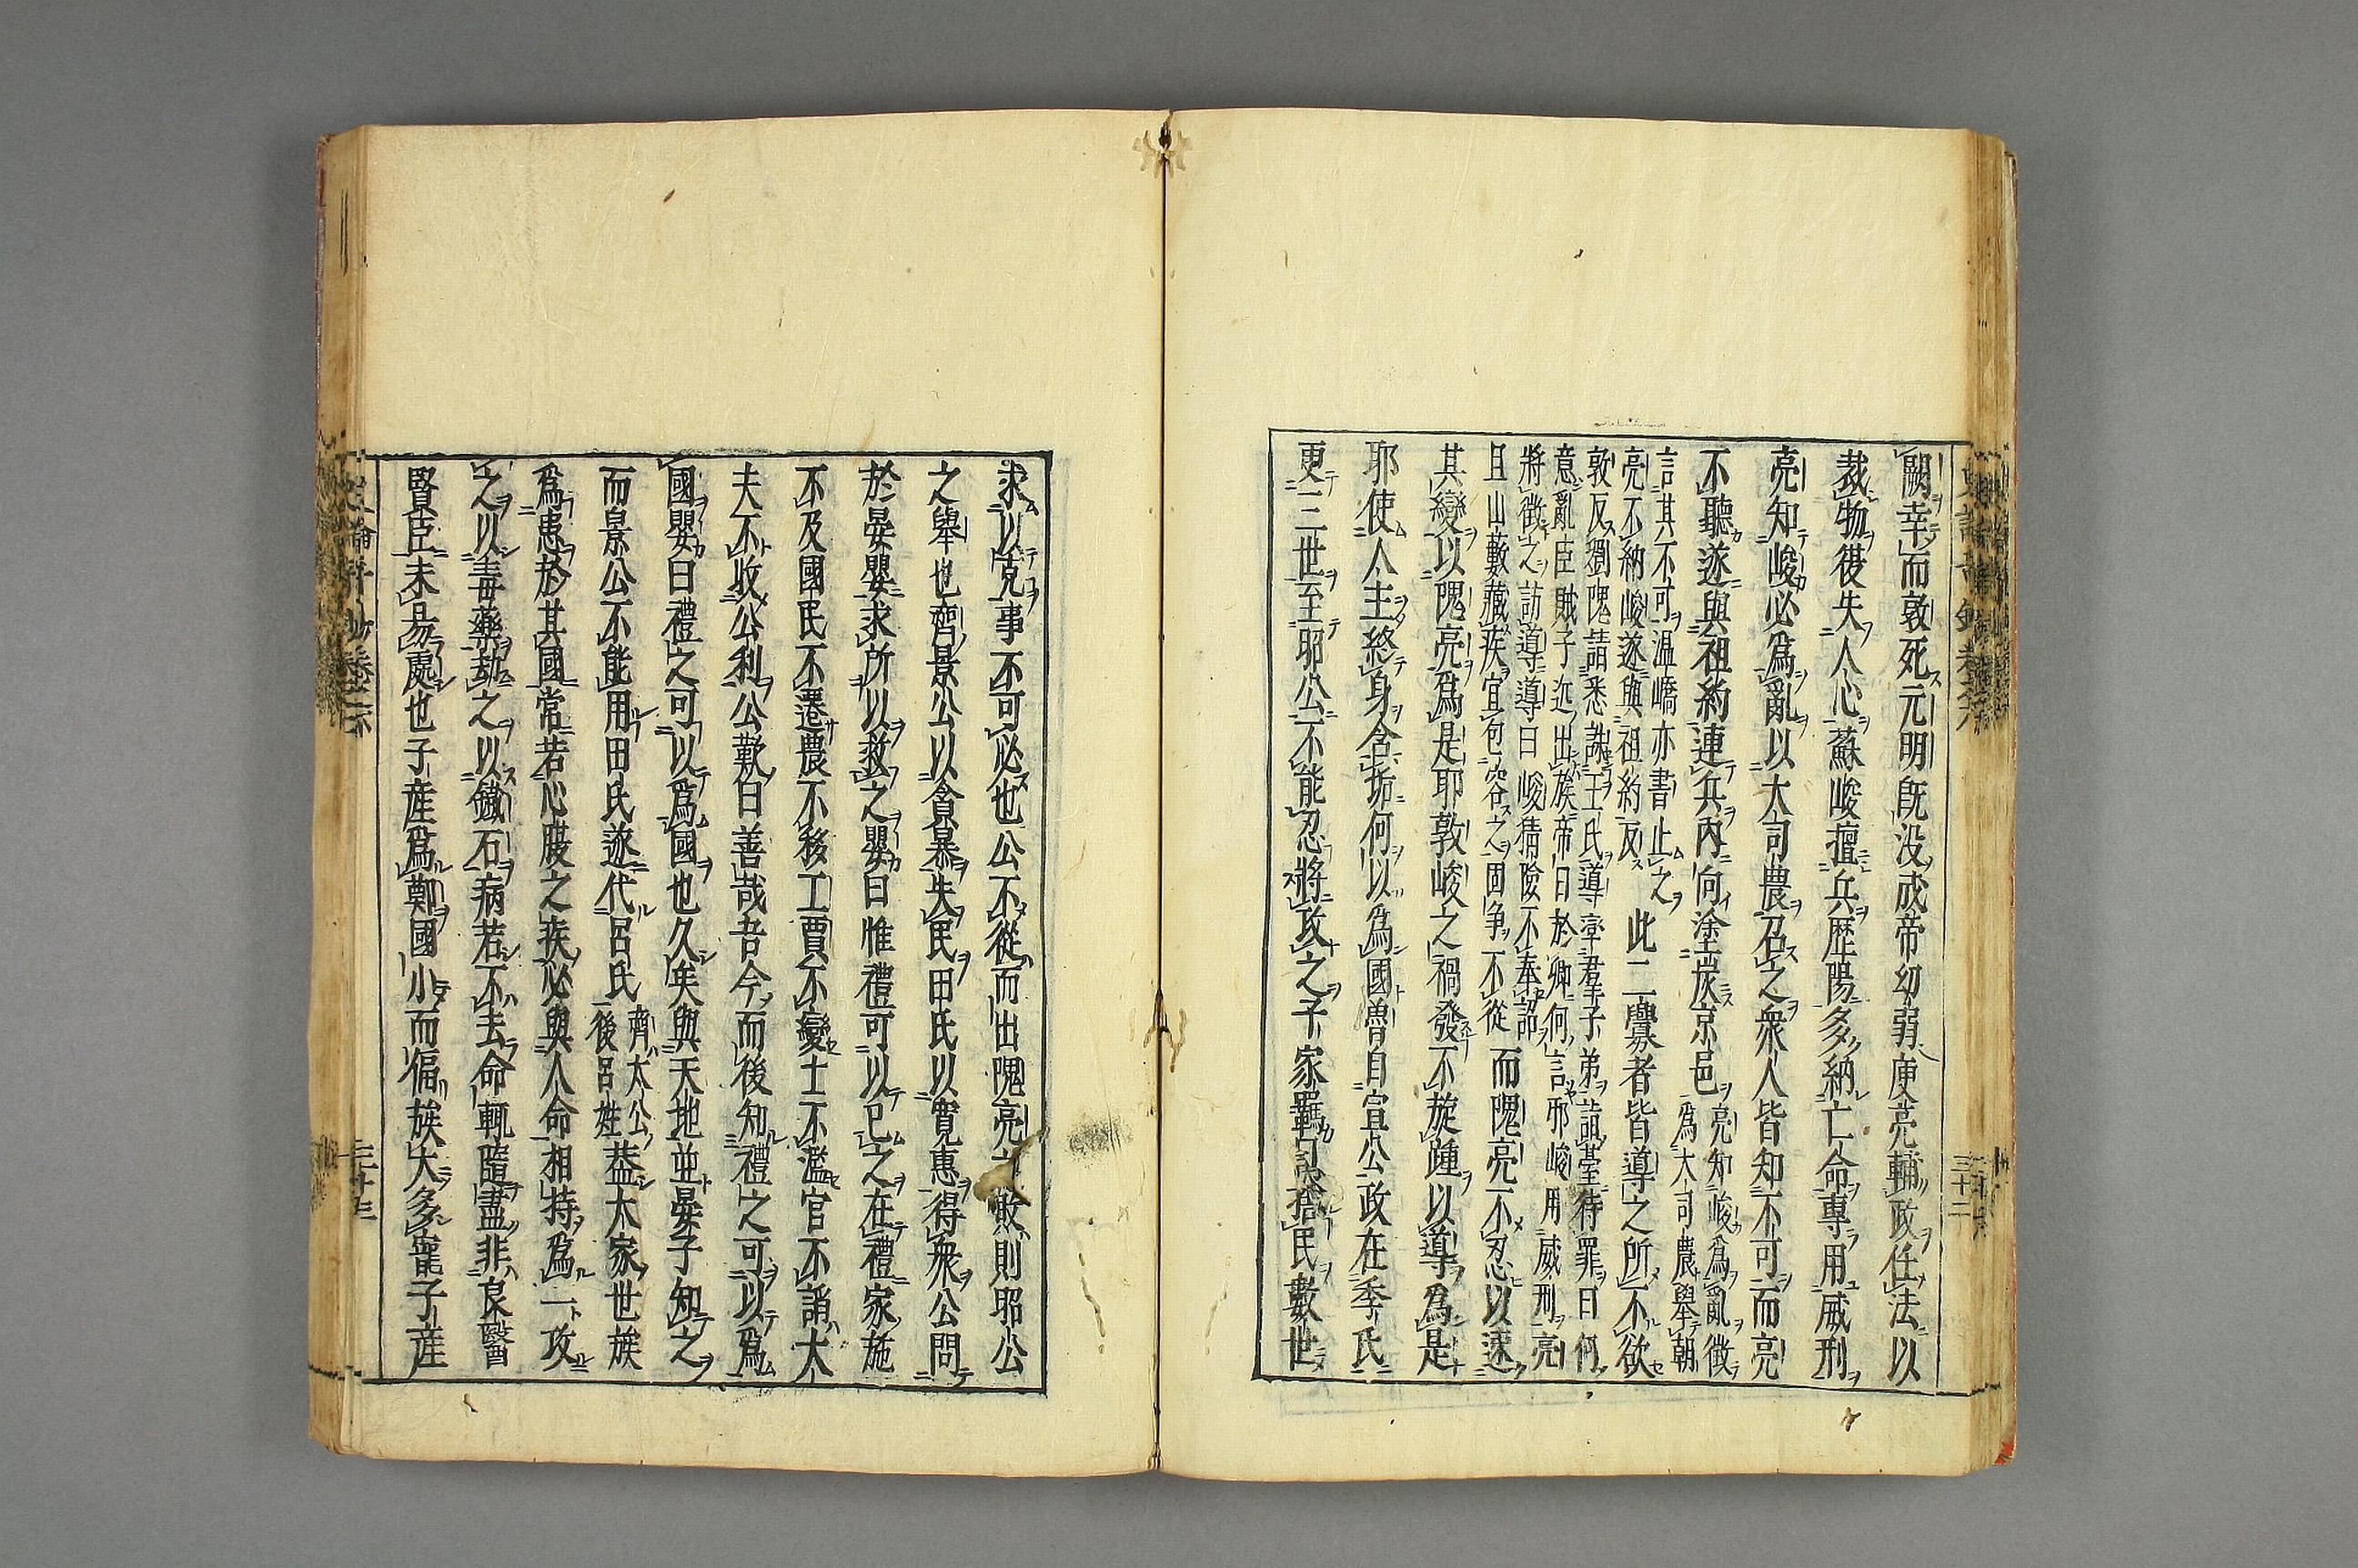 闕幸而敦死元明既没成帝幼弱庾亮輔政任法以
裁物復失人心蘇峻擅兵歴陽多納亡命專用威刑
亮知峻必爲亂以大司農召之衆人皆知不可而亮
不聽遂與祖約連兵內向塗炭京邑亮知峻爲亂徵
爲大司農舉朝
言其不可温嶠亦書止之
亮不納峻遂與祖約反此二釁者皆導之所不欲
敦反劉隗請悉誅王氏導率羣子弟詣臺待罪曰何
意亂臣賊子近出族帝曰於卿何言邪峻用威刑亮
將徵之訪導導曰峻猜險不奉詔
且山藪藏疾宜包容之固争不從而隗亮不忍以速
其變以隗亮爲是耶敦峻之禍發不旋踵以導爲是
耶使人主終身含垢何以爲國魯自宣公政在季氏
更三世至昭公不能忍將攻之子家羈曰舍民數世
求以克事不可必也公不從而出隗亮之敗則昭公
之舉也齊景公以貪暴失民田氏以寬惠得衆公問
於晏嬰求所以救之嬰曰惟禮可以已之在禮家施
不及國民不遷農不移工賈不變士不濫官不諂大
夫不收公利公歎曰善哉吾今而後知禮之可以爲
國嬰曰禮之可以爲國也久矣與天地並晏子知之
而景公不能用田氏遂代呂氏齊太公
後呂姓葢大家世族
爲患於其國常若心腹之疾必與人命相持爲一攻
之以毒藥劫之以鍼石病若不去命輒隨盡非良醫
賢臣未易處也子産爲鄭國小而偪族大多寵子産